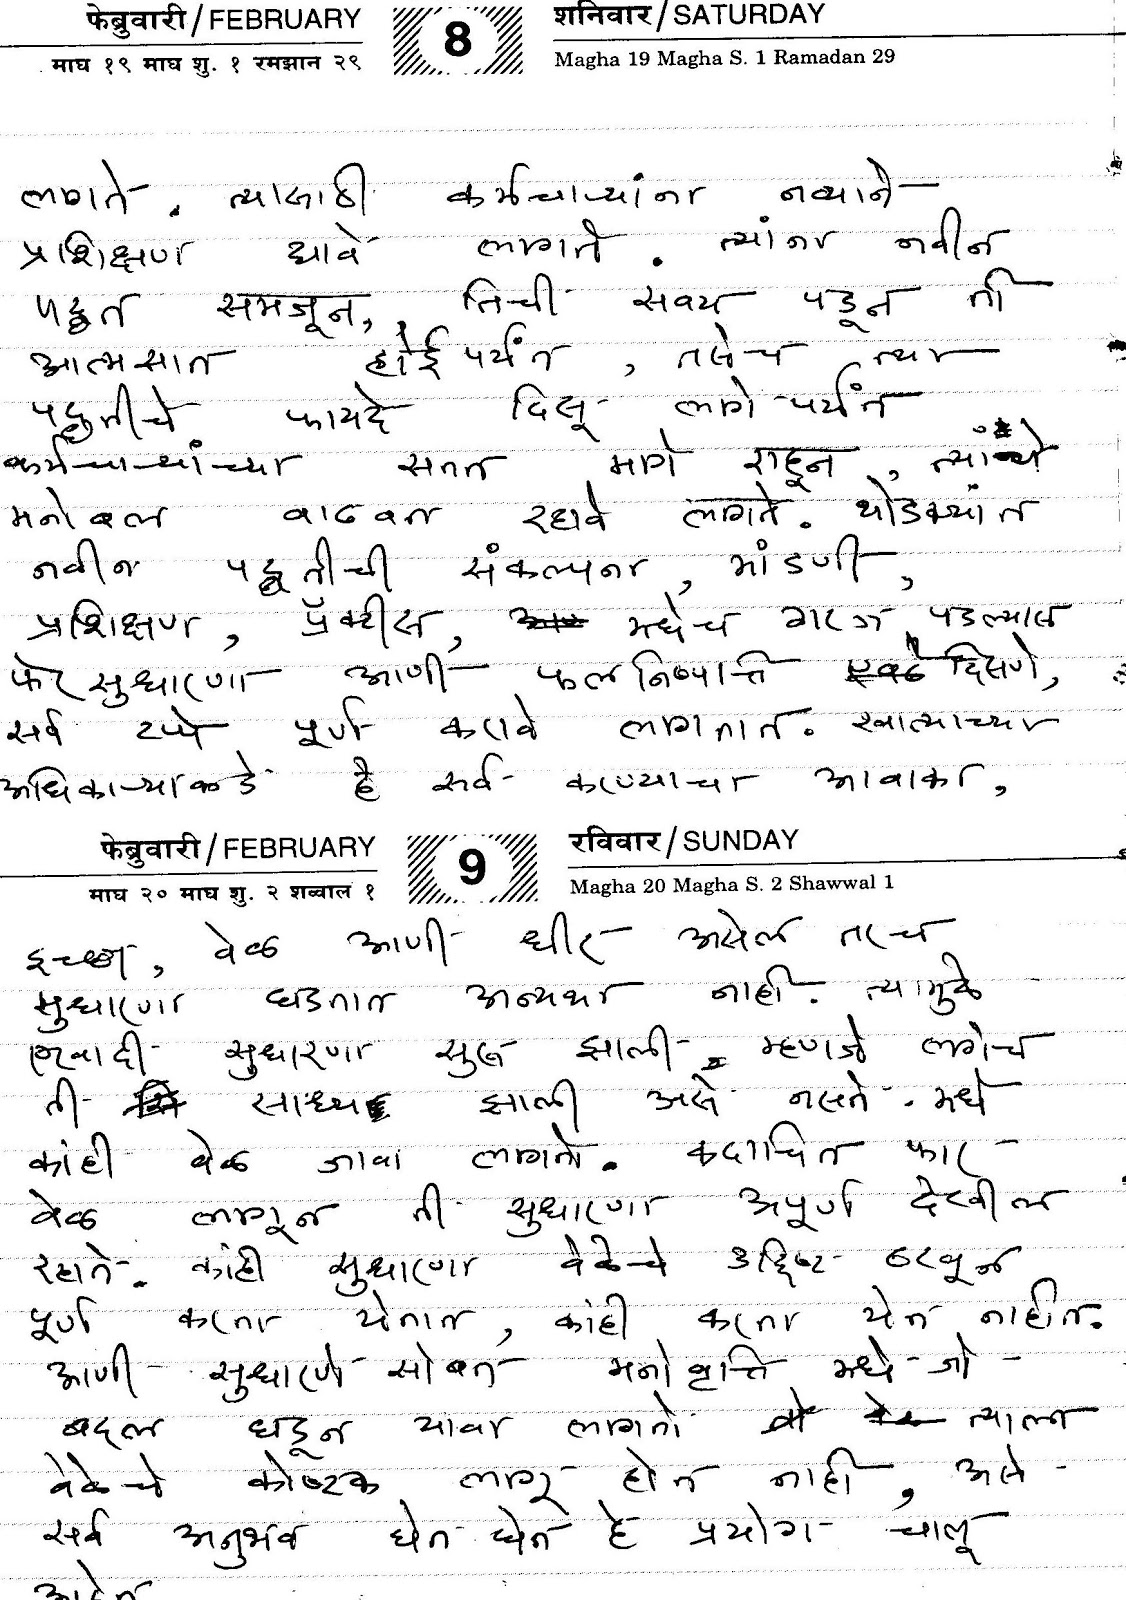 फेब्रुवारी/FEBRUARY 8 शनिवार/SATURDAY
माघ १९ माघ शु. १ रमझान २९ Magha 19 Magha S. 1 Ramadan 29
लागते. त्यासाठी कर्मचाऱ्यांना नव्याने
प्रशिक्षण द्यावे लागते. त्यांना नवीन
पद्धत समजून, तिची सवय पडून ती
आत्मसात होईपर्यंत, तसेच त्या
पद्धतीचे फायदे दिसू लागेपर्यंत
कर्मचाऱ्यांच्या सतत मागे राहून, त्यांचे
मनोबल वाढवत रहावे लागते. थोडक्यांत
नवीन पद्धतीची संकल्पना, मांडणी,
प्रशिक्षण, प्रॅक्टीस, मधेच गरज पडल्यास
फेरसुधारणा आणी फलनिष्पात्ति दिसणे,
सर्व टप्पे पूर्ण करावे लागतात. खात्याच्या
अधिकाऱ्याकडे हे सर्व करण्याचा आवाका,
फेब्रुवारी/FEBRUARY 9 रविवार/SUNDAY
माघ २० माघ शु. २ शव्वाल १ Magha 20 Magha S. 2 Shawwal 1
इच्छा, वेळ आणी धीर असेल तरच
सुधारणा घडतात अन्यथा नाही. त्यामुळे
एखादी सुधारणा सुरू झाली म्हणजे लगेच
ती साध्य झाली असे नसते. मधे
कांही वेळ जावा लागतो. कदाचित फार
वेळ लागून ती सुधारणा अपूर्ण देखील
रहाते. कांही सुधारणा वेळेचे उद्दिष्ट ठरवून
पूर्ण करता येतात, कांही करता येत नाहीत.
आणी सुधारणेसोबत मनोवृत्ति मधे जो
बदल घडून यावा लागतो त्याला
वेळेचे कोष्टक लागू होत नाही, असे
सर्व अनुभव घेत घेत हे प्रयोग चालू
आहेत